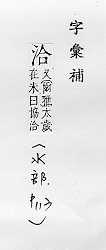 字彙補
洽
又爾雅太歲
在未曰協洽
(水部.